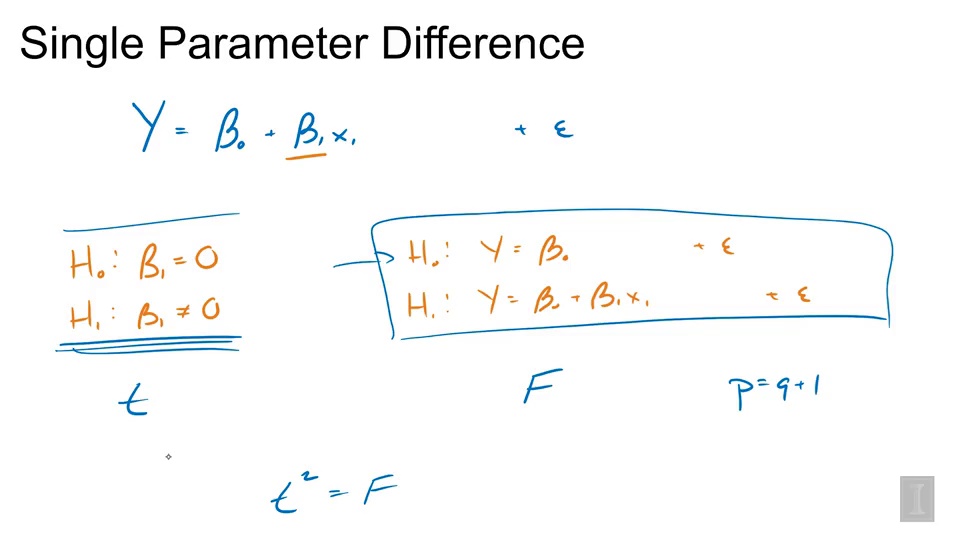 Single Parameter Difference
Y = β₀ + β₁x₁ + ε
H₀: β₁ = 0
H₁: β₁ ≠ 0
H₀: Y = β₀ + ε
H₁: Y = β₀ + β₁x₁ + ε
t
F
p = q + 1
t² = F
I